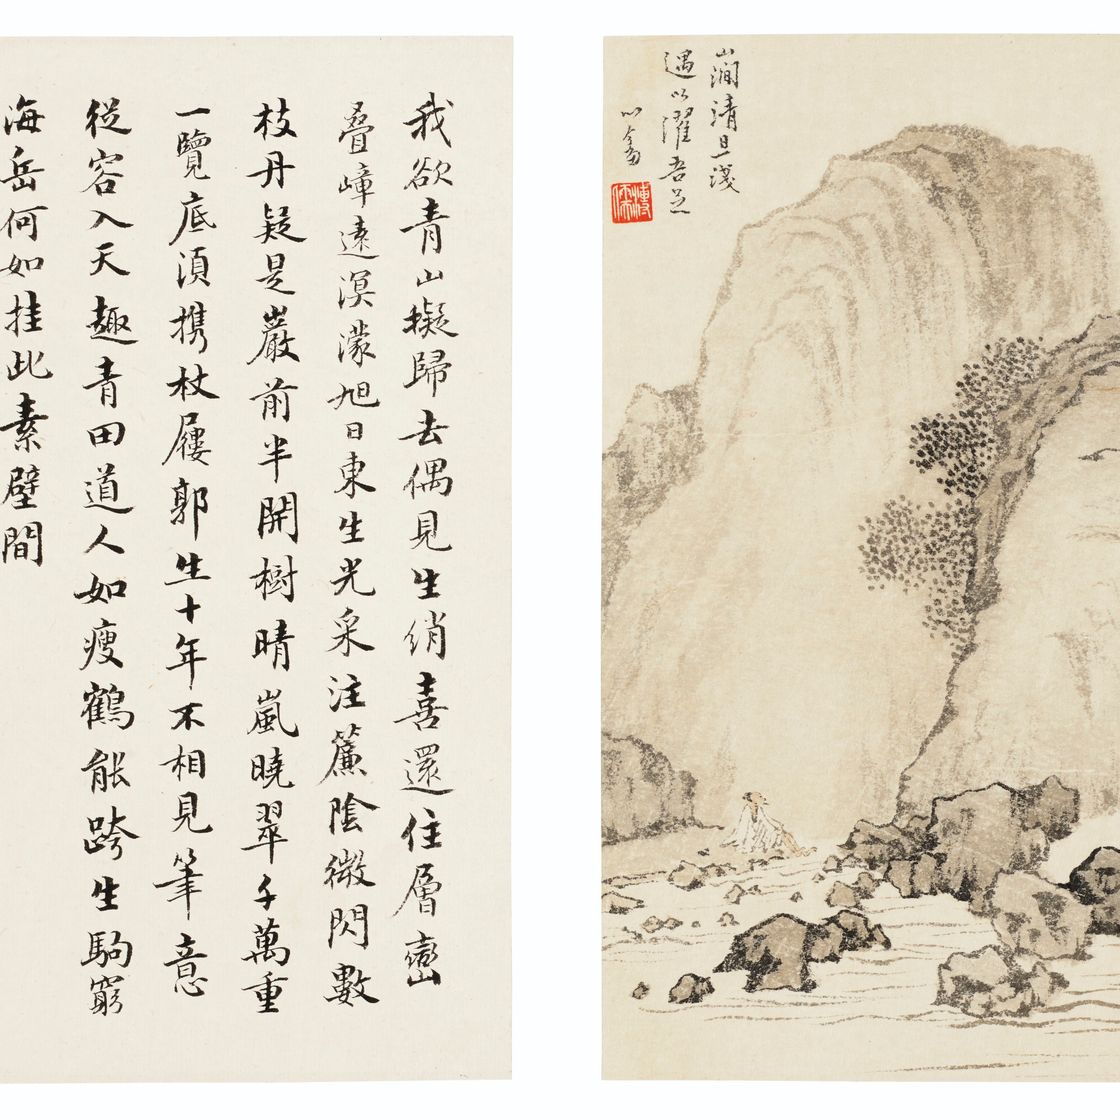 山澗清且淺
遇以濯吾足
心畬
溥儒
我欲青山擬歸去偶見生綃喜還住層巒
叠嶂遠溟濛旭日東生光采注簾陰微閃數
枝丹疑是巖前半開樹晴嵐曉翠千萬重
一覽底須携杖屨郭生十年不相見筆意
從容入天趣青田道人如瘦鶴能跨生駒窮
海岳何如挂此素壁間